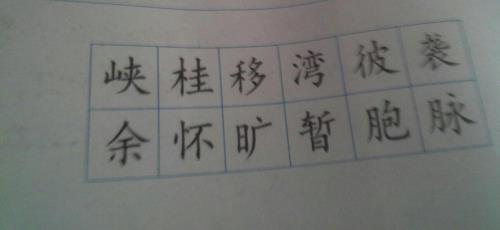 峡桂移湾彼袭
余怀旷暂胞脉